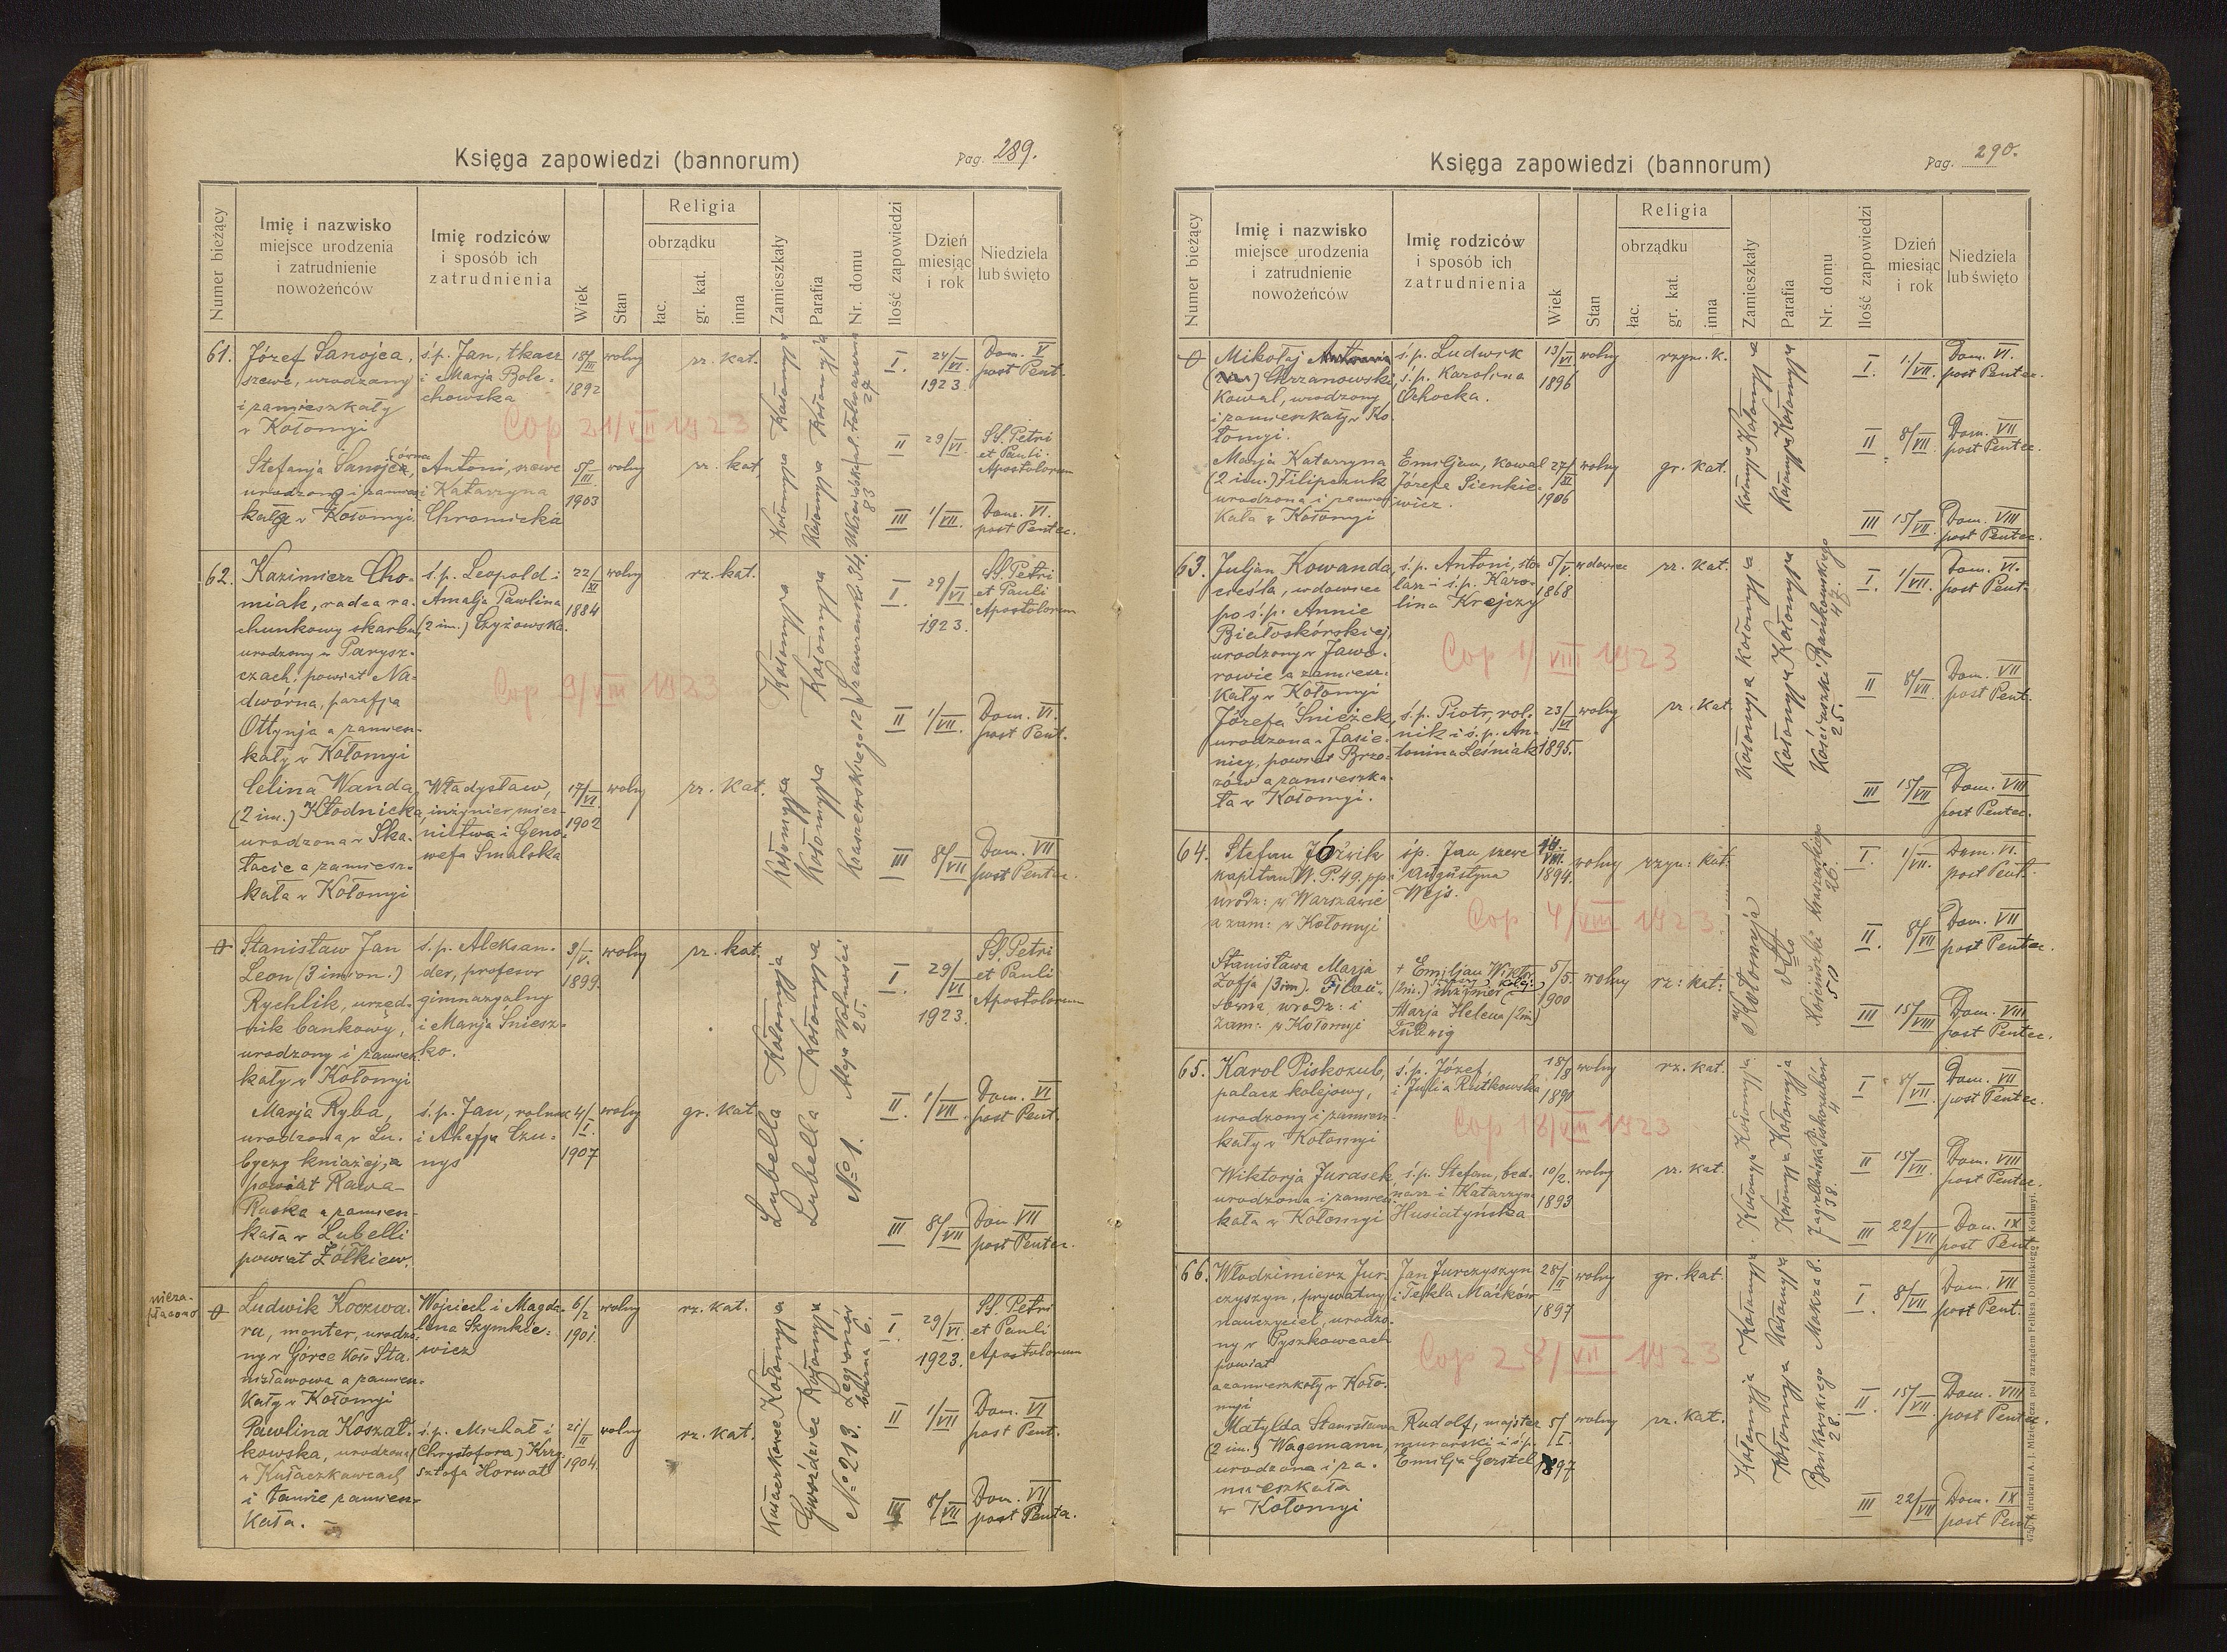 Księga zapowiedzi (bannorum)
Pag. 289.
Numer bieżący
Imię i nazwisko
miejsce urodzenia
i zatrudnienie
nowożeńców
Imię rodziców
i sposób ich
zatrudnienia
Wiek
Stan
Religia
obrządku
łac.
gr. kat.
inna
Zamieszkały
Parafia
Nr. domu
Ilość zapowiedzi
Dzień
miesiąc
i rok
Niedziela
lub święto
61.
Józef Sanojca,
szewc, urodzony
i zamieszkały
w Kołomyi
ś.p. Jan, tkacz
i Marja Bole-
chowska
18/III
1892
wolny
rz. kat.
Kołomyja
Kołomyja
27
I.
24/VI.
1923.
Dom. V
post Pent.
Cop 21/VII 1923
Stefanja Sanojca,
urodzona i zamiesz
kała w Kołomyi.
Antoni, szewc
i Katarzyna
Chromicka
5/III.
1903
wolny
rz. kat.
Kołomyja
Kołomyja
83
II
29/VI.
SS. Petri
et Pauli
Apostolorum
III
1/VII.
Dom. VI.
post Pentec.
62.
Kazimierz Cho-
miak, radca ra-
chunkowy skarbu,
urodzony w Parysz-
czach, powiat Na-
dwórna, parafja
Ottynja a zamiesz-
kały w Kołomyi
ś.p. Leopold i
Amalja Pawlina
(2 im.) Czyżowska.
22/XI
1884
wolny
rz. kat.
Kołomyja
Kołomyja
34.
I.
29/VI
1923.
SS. Petri
et Pauli
Apostolorum
Cop 9/VIII 1923
II
1/VII.
Dom. VI.
post Pent.
Celina Wanda
(2 im.) Kłodnicka,
urodzona w Ska-
łacie a zamiesz-
kała w Kołomyi
Władysław,
inżynier mier-
nictwa i Geno-
wefa Smalska
17/VI
1902
wolny
rz. kat.
Kołomyja
Kołomyja
Kraszewskiego 12
III
8/VII
Dom. VII
post Pentec.
Stanisław Jan
Leon (3 imion.)
Rychlik, urzęd-
nik bankowy,
urodzony i zamiesz
kały w Kołomyi
ś.p. Aleksan-
der, profesor
gimnazyalny
i Marja Śniesz-
ko.
3/V.
1899
wolny
rz. kat.
Kołomyja
Kołomyja
Aleja Wolności
25.
I.
29/VI
1923.
SS. Petri
et Pauli
Apostolorum
Marja Ryba,
urodzona w Lu-
byczy kniaziej,
powiat Rawa
Ruska a zamiesz-
kała w Lubelli
powiat Żółkiew.
ś.p. Jan, rolnik
i Ahafja Czu-
nys
4/I.
1907
wolny
gr. kat.
Lubella
Lubella
№ 1.
II.
1/VII.
Dom. VI
post Pent.
III
8/VII
Dom VII
post Pentec.
nieza-
płacono
Ludwik Koczwa-
ra, monter, urodzo-
ny w Górce koło Sta-
nisławowa a zamiesz-
kały w Kołomyi
Wojciech i Magda-
lena Szymkie-
wicz
6/2
1901.
wolny
rz. kat.
Kołomyja
Kołomyja
Legjonów
6.
I
29/VI.
1923.
SS. Petri
et Pauli
Apostolorum
Pawlina Koszał-
kowska, urodzona
w Kułaczkowcach
i tamże zamiesz-
kała.
ś.p. Michał i
(Chrystofora) Krzy-
sztofa Horwat
21/II
1904.
wolny
rz. kat.
Kułaczkowce
Gwoździec
№ 213.
II
1/VII
Dom. VI
post Pent.
III
8/VII
Dom. VII
post Pentec.
Księga zapowiedzi (bannorum)
Pag. 290.
Numer bieżący
Imię i nazwisko
miejsce urodzenia
i zatrudnienie
nowożeńców
Imię rodziców
i sposób ich
zatrudnienia
Wiek
Stan
Religia
obrządku
łac.
gr. kat.
inna
Zamieszkały
Parafia
Nr. domu
Ilość zapowiedzi
Dzień
miesiąc
i rok
Niedziela
lub święto
Mikołaj
Chrzanowski,
kowal, urodzony
i zamieszkały w Ko-
łomyi.
ś.p. Ludwik
ś.p. Karolina
Ochocka.
13/VI
1896
wolny
rzym. k.
Kołomyja
Kołomyja
I.
1/VII.
Dom. VI.
post Pentec.
II
8/VII
Dom. VII
post Pentec.
Marja Katarzyna
(2 im.) Filipczuk
urodzona i zamiesz-
kała w Kołomyi
Emiljan, kowal
Józefa Sienkie-
wicz.
27/XI
1906
wolny
gr. kat.
Kołomyja
Kołomyja
III
15/VII.
Dom. VIII
post Pentec.
63.
Juljan Kowanda
cieśla, wdowiec
po ś.p. Annie
Białoskórskiej,
urodzony w Jawo-
rowie a zamiesz-
kały w Kołomyi
ś.p. Antoni, sto-
larz i ś.p. Karo-
lina Krejczy
5/V
1868
wdowiec
rz. kat.
Kołomyja
Kołomyja
47.
I.
1/VII.
Dom. VI.
post Pent.
Cop 1/VIII 1923
Józefa Śnieżek,
urodzona w Jasie-
nicy, powiat Brzo-
zów a zamieszka-
ła w Kołomyi.
ś.p. Piotr, rol-
nik i ś.p. An-
tonina Leśniak
23/VI
1895.
wolny
rz. kat.
Kołomyja
Kołomyja
Kościuszki
25.
II
8/VII.
Dom. VII
post Pent.
III
15/VII
Dom. VIII
post Pentec.
64.
Stefan Jóźwik
kapitan W.P. 49. pp.
urodz: w Warszawie
a zam: w Kołomyi
śp. Jan szewc
i Augustyna
Wejs.
VIII.
1894.
wolny
rzym: kat.
Kraszewskiego
26.
I.
1/VII.
Dom. VI.
post Pent.
Cop 4/VIII 1923
II.
8/VII
Dom. VII
post Pentec.
Stanisława Marja
Zofja (3 im).
urodz: i
zam: w Kołomyi
+ Emiljan Wiktor
(2im.) inżynier kolej:
Marja Helena (2im)
Ludwig
5/5.
1900
wolny
rz: kat:
w Kołomyja
dtto
50
III
15/VII
Dom. VIII
post Pentec.
65.
Karol Piskozub,
palacz kolejowy,
urodzony i zamiesz-
kały w Kołomyi
ś.p. Józef,
i Julia Rutkowska
18/8
1890
wolny
rz. kat.
Kołomyja
Kołomyja
4
I
8/VII.
Dom. VII
post Pentec.
Cop 18/VII 1923
Wiktorja Jurasek,
urodzona i zamiesz-
kała w Kołomyi
ś.p. Stefan, bed-
narz i Katarzyna
Husiatyńska
10/2.
1893
wolny
rz. kat.
Kołomyja
Kołomyja
Jagiellońska
38.
II
15/VII.
Dom. VIII
post Pentec.
III
22/VII
Dom. IX
post Pent.
66.
Włodzimierz Jur-
czyszyn, prywatny
nauczyciel, urodzo-
ny w Pyszkowcach
powiat
a zamieszkały w Koło-
myi
Jan Jurczyszyn
i Tekla Maćków
28/II
1897
wolny
gr. kat.
Kołomyja
Kołomyja
Mokra 8.
I.
8/VII
Dom. VII
post Pent.
Cop 28/VII 1923
II.
15/VII.
Dom. VIII
post Pentec.
Matylda Stanisława
(2 im.) Wagemann,
urodzona i za-
mieszkała
w Kołomyi
Rudolf, majster
murarski i ś.p.
Emilja Gerstel
5/I.
1897
wolny
rz. kat.
Kołomyja
Kołomyja
28.
III
22/VII
Dom. IX
post Pent.